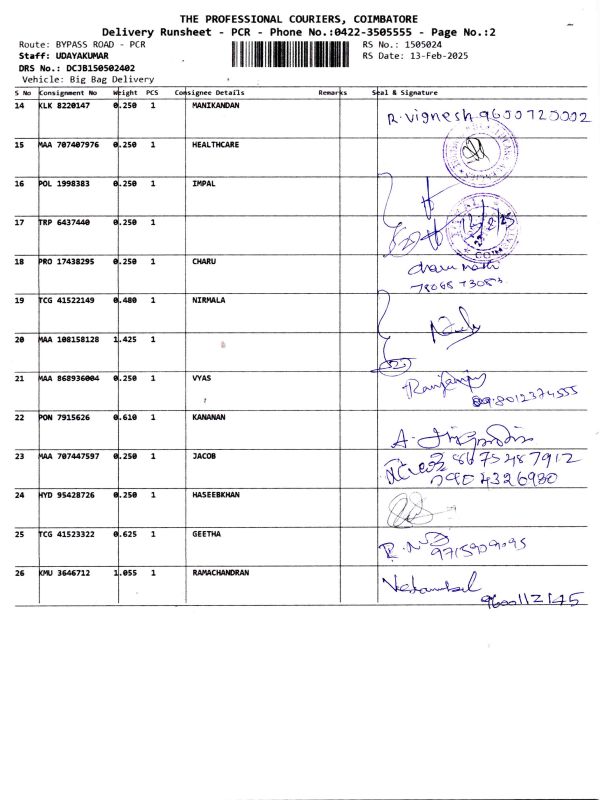 THE PROFESSIONAL COURIERS, COIMBATORE
Delivery Runsheet - PCR - Phone No.:0422-3505555 - Page No.:2
Route: BYPASS ROAD - PCR RS No.: 1505024
Staff: UDAYAKUMAR RS Date: 13-Feb-2025
DRS No.: DCJB150502402
Vehicle: Big Bag Delivery
S No Consignment No Weight PCS Consignee Details Remarks Seal & Signature
14 KLK 8220147 0.250 1 MANIKANDAN
R. vignesh 9600720002
15 MAA 707407976 0.250 1 HEALTHCARE
16 POL 1998383 0.250 1 IMPAL
17 TRP 6437440 0.250 1
18 PRO 17438295 0.250 1 CHARU
19 TCG 41522149 0.480 1 NIRMALA
20 MAA 108158128 1.425 1
32
21 MAA 868936004 0.250 1 VYAS
Ranjanjy
8012374555
22 PON 7915626 0.610 1 KANANAN
23 MAA 707447597 0.250 1 JACOB
8675487912
24 HYD 95428726 0.250 1 HASEEBKHAN
25 TCG 41523322 0.625 1 GEETHA
26 KMU 3646712 1.055 1 RAMACHANDRAN
9600112145